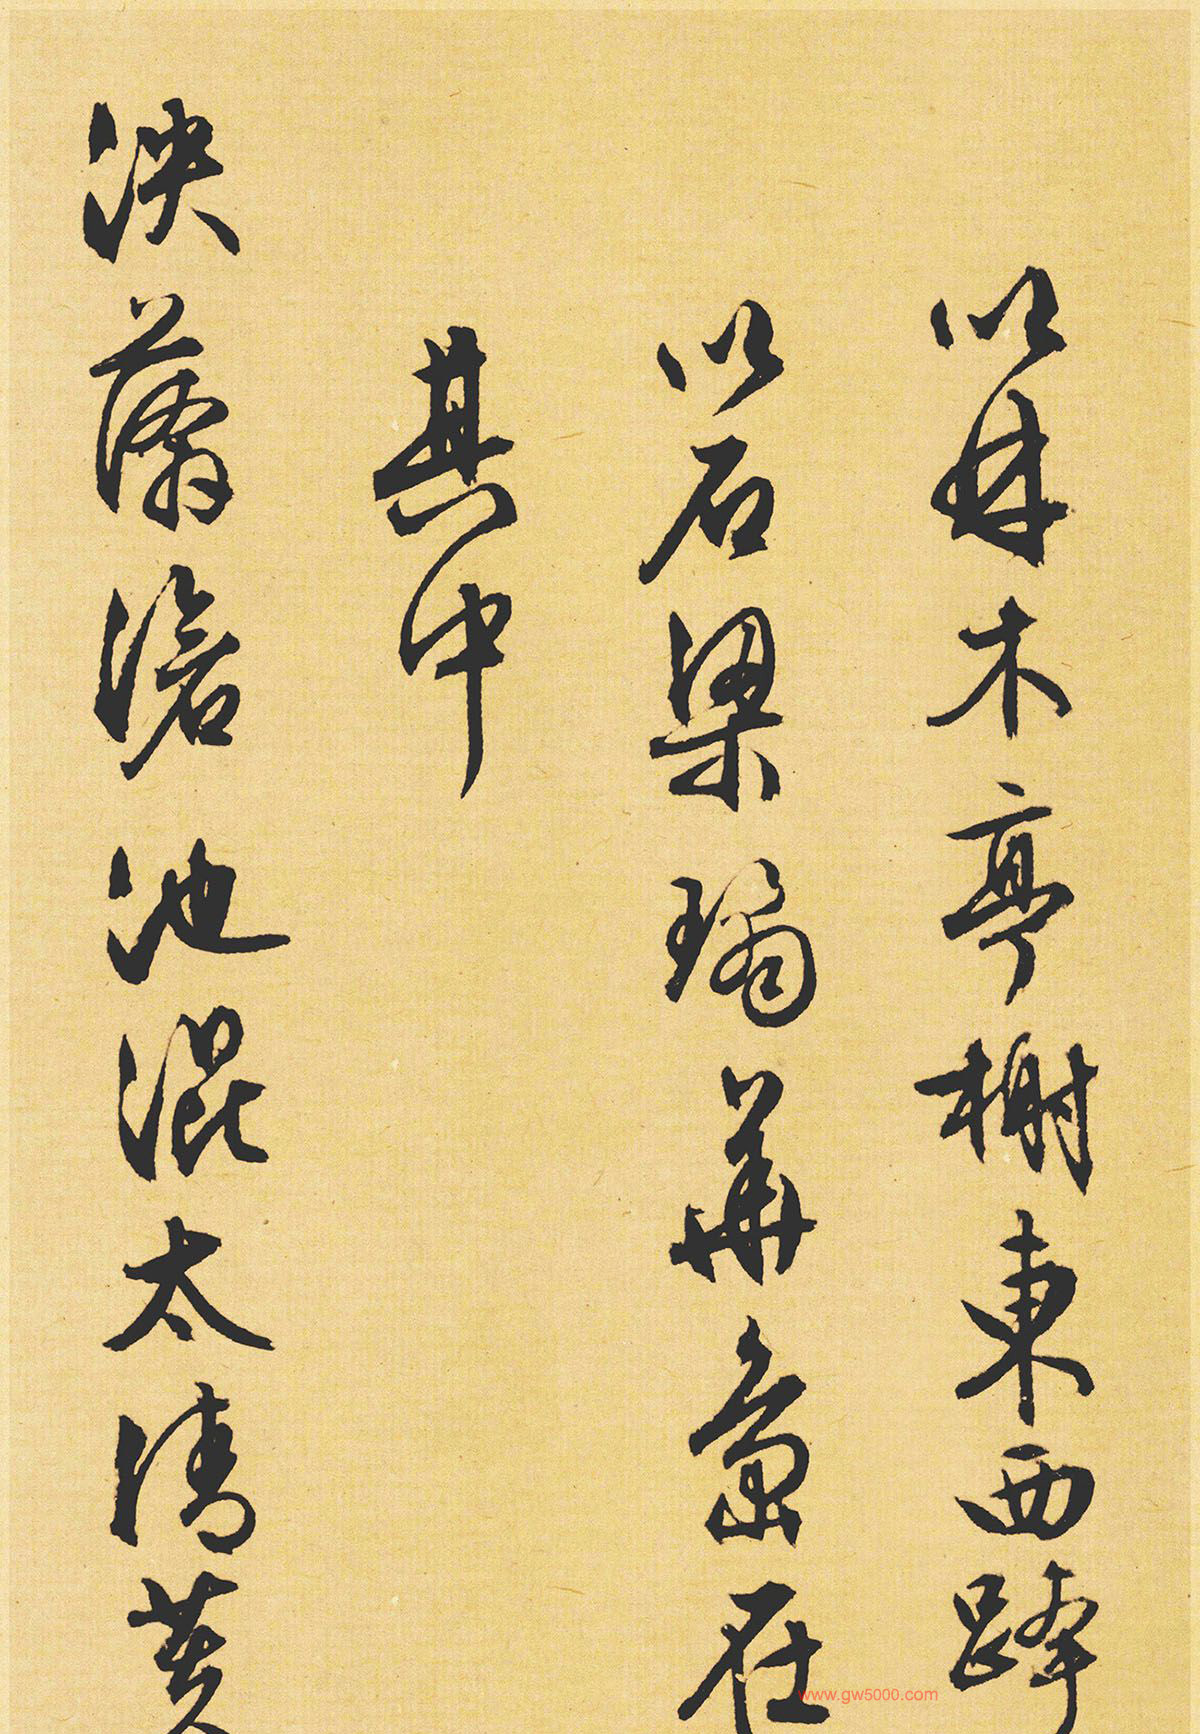 以林木亭榭東西跨
以石梁璚華島在
其中
泱滄池混太清芙
www.gw5000.com